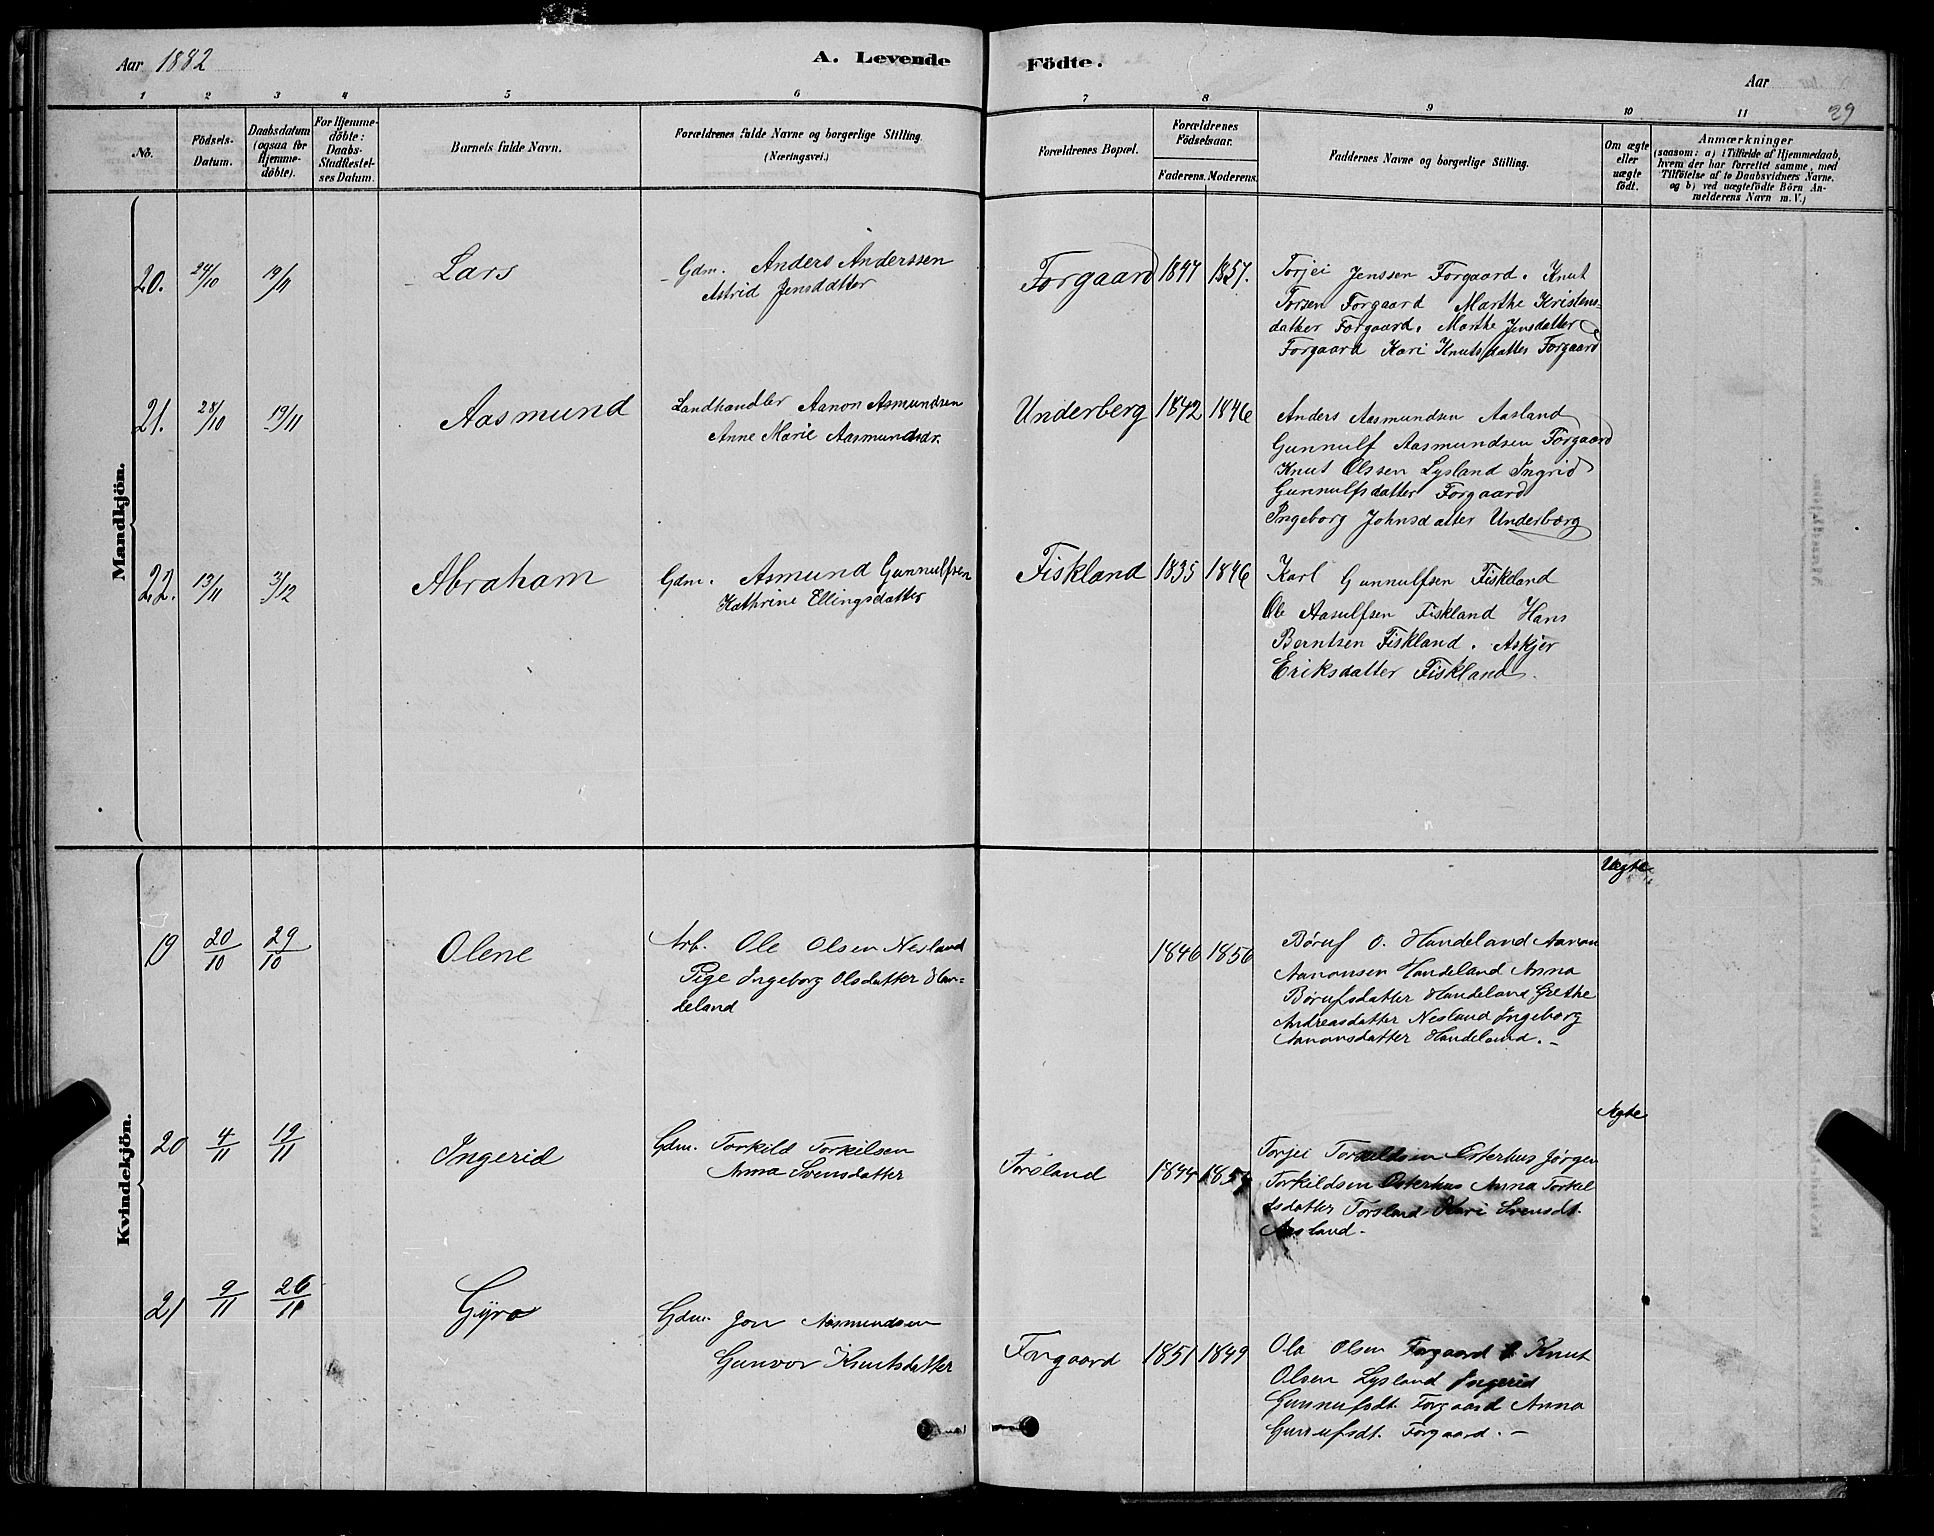 Aar 1882
A. Levende Födte.
Aar
29
1 2 3 4 5 6 7 8 9 10 11
No.
Födsels-Datum.
Daabsdatum (ogsaa for Hjemme-døbte).
For Hjemme-döbte: Daabs-Stadfestel-ses Datum.
Barnets fulde Navn.
Forældrenes fulde Navne og borgerlige Stilling.
(Næringsvei.)
Forældrenes Bopæl.
Forældrenes Födselsaar.
Faderens. Moderens.
Faddernes Navne og borgerlige Stilling.
Om ægte eller uægte födt.
Anmærkninger
(saasom: a) i Tilfælde af Hjemmedaab,
hvem der har forrettet samme, med
Tilföielse af to Daabsvidners Navne.
og b) ved uægtefödte Börn An-
melderens Navn m. V.)
Mandkjön.
20. 24/10 19/11 Lars
Gdm. Anders Anderssen
Astrid Jensdatter
Forgaard 1847 1857.
Torjei Jenssen Forgaard. Knut
Torsen Forgaard Marthe Kristens-
datter Forgaard. Marthe Jensdatter
Forgaard Kari Knutsdatter Forgaard
21. 28/10 19/11 Aasmund
Landhandler Aanon Asmundsen
Anne Marie Aasmundsdr.
Underberg 1842 1846
Anders Aasmundsen Aasland
Gunnulf Aasmundsen Forgaard
Knut Olssen Lysland Ingrid
Gunnulfsdatter Forgaard
Ingeborg Johnsdatter Underbærg
22. 13/11 3/12 Abraham
Gdm. Asmund Gunnulfsen
Kathrine Ellingsdatter
Fiskland 1835 1846
Karl Gunnulfsen Fiskland
Ole Aasulfsen Fiskland Hans
Berntsen Fiskland. Askjer
Eriksdatter Fiskland.
Kvindekjön.
Uægte
19 20/10 29/10 Olene
Arb. Ole Olsen Nesland
Pige Ingeborg Olsdatter Han-
deland
1846 1856
Børuf O. Handeland Aanon
Aanonsen Handeland Anna
Børufsdatter Handeland Grethe
Andreasdatter Nesland Ingeborg
Aanonsdatter Handeland. -
Ægte
20 4/11 19/11 Ingerid
Gdm. Torkild Torkilsen
Anna Svensdatter
Torsland 1844
Torjei Torkildsen Osterhus Jørgen
Torkildsen Osterhus Anna Torkil
dsdatter Torsland Kari Svensdt.
Aasland -
21 9/11 26/11 Gyro
Gdm. Jon Aasmundsen
Gunvor Knutsdatter
Forgaard 1851 1849
Ola Olsen Forgaard Knut
Olsen Lysland Ingerid
Gunnufsdt. Forgaard Anna
Gunnufsdt. Forgaard. -